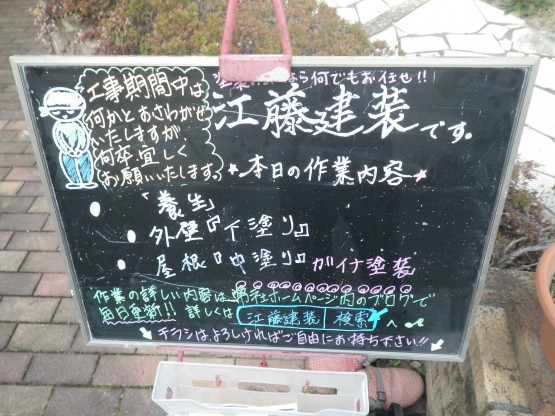 なら何でもお任せ!!
工事期間中は
何かとおさわがせ
いたしますが
何卒宜しく
お願いいたします。
江藤建装です。
*本日の作業内容*
「養生」
外壁『下塗り』
屋根『中塗り』ガイナ塗装
作業の詳しい内容は弊社ホームページ内のブログで
毎日更新!! 詳しくは 江藤建装 検索 へ
チラシは、よろしければご自由にお持ち下さい!!